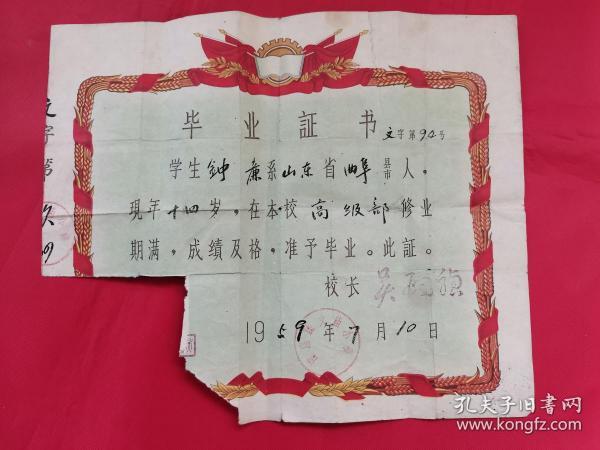 毕业証书
文字第94号
学生钟廉系山东省曲阜县市人。
現年十四岁,在本校高级部修业
期满,成績及格,准予毕业。此証。
校长 吴
1959年7月10日
文字第
孔夫子旧书网
www.kongfz.com